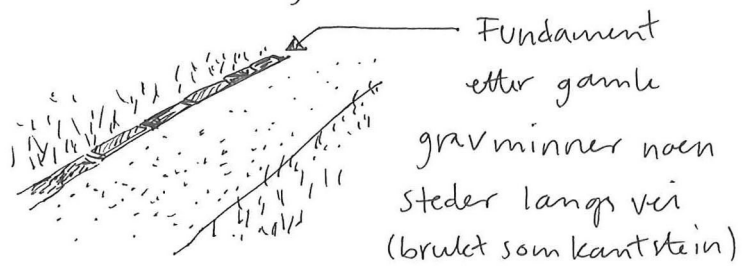 Fundament
etter gamle
gravminner noen
steder langs vei
(brukt som kantstein)